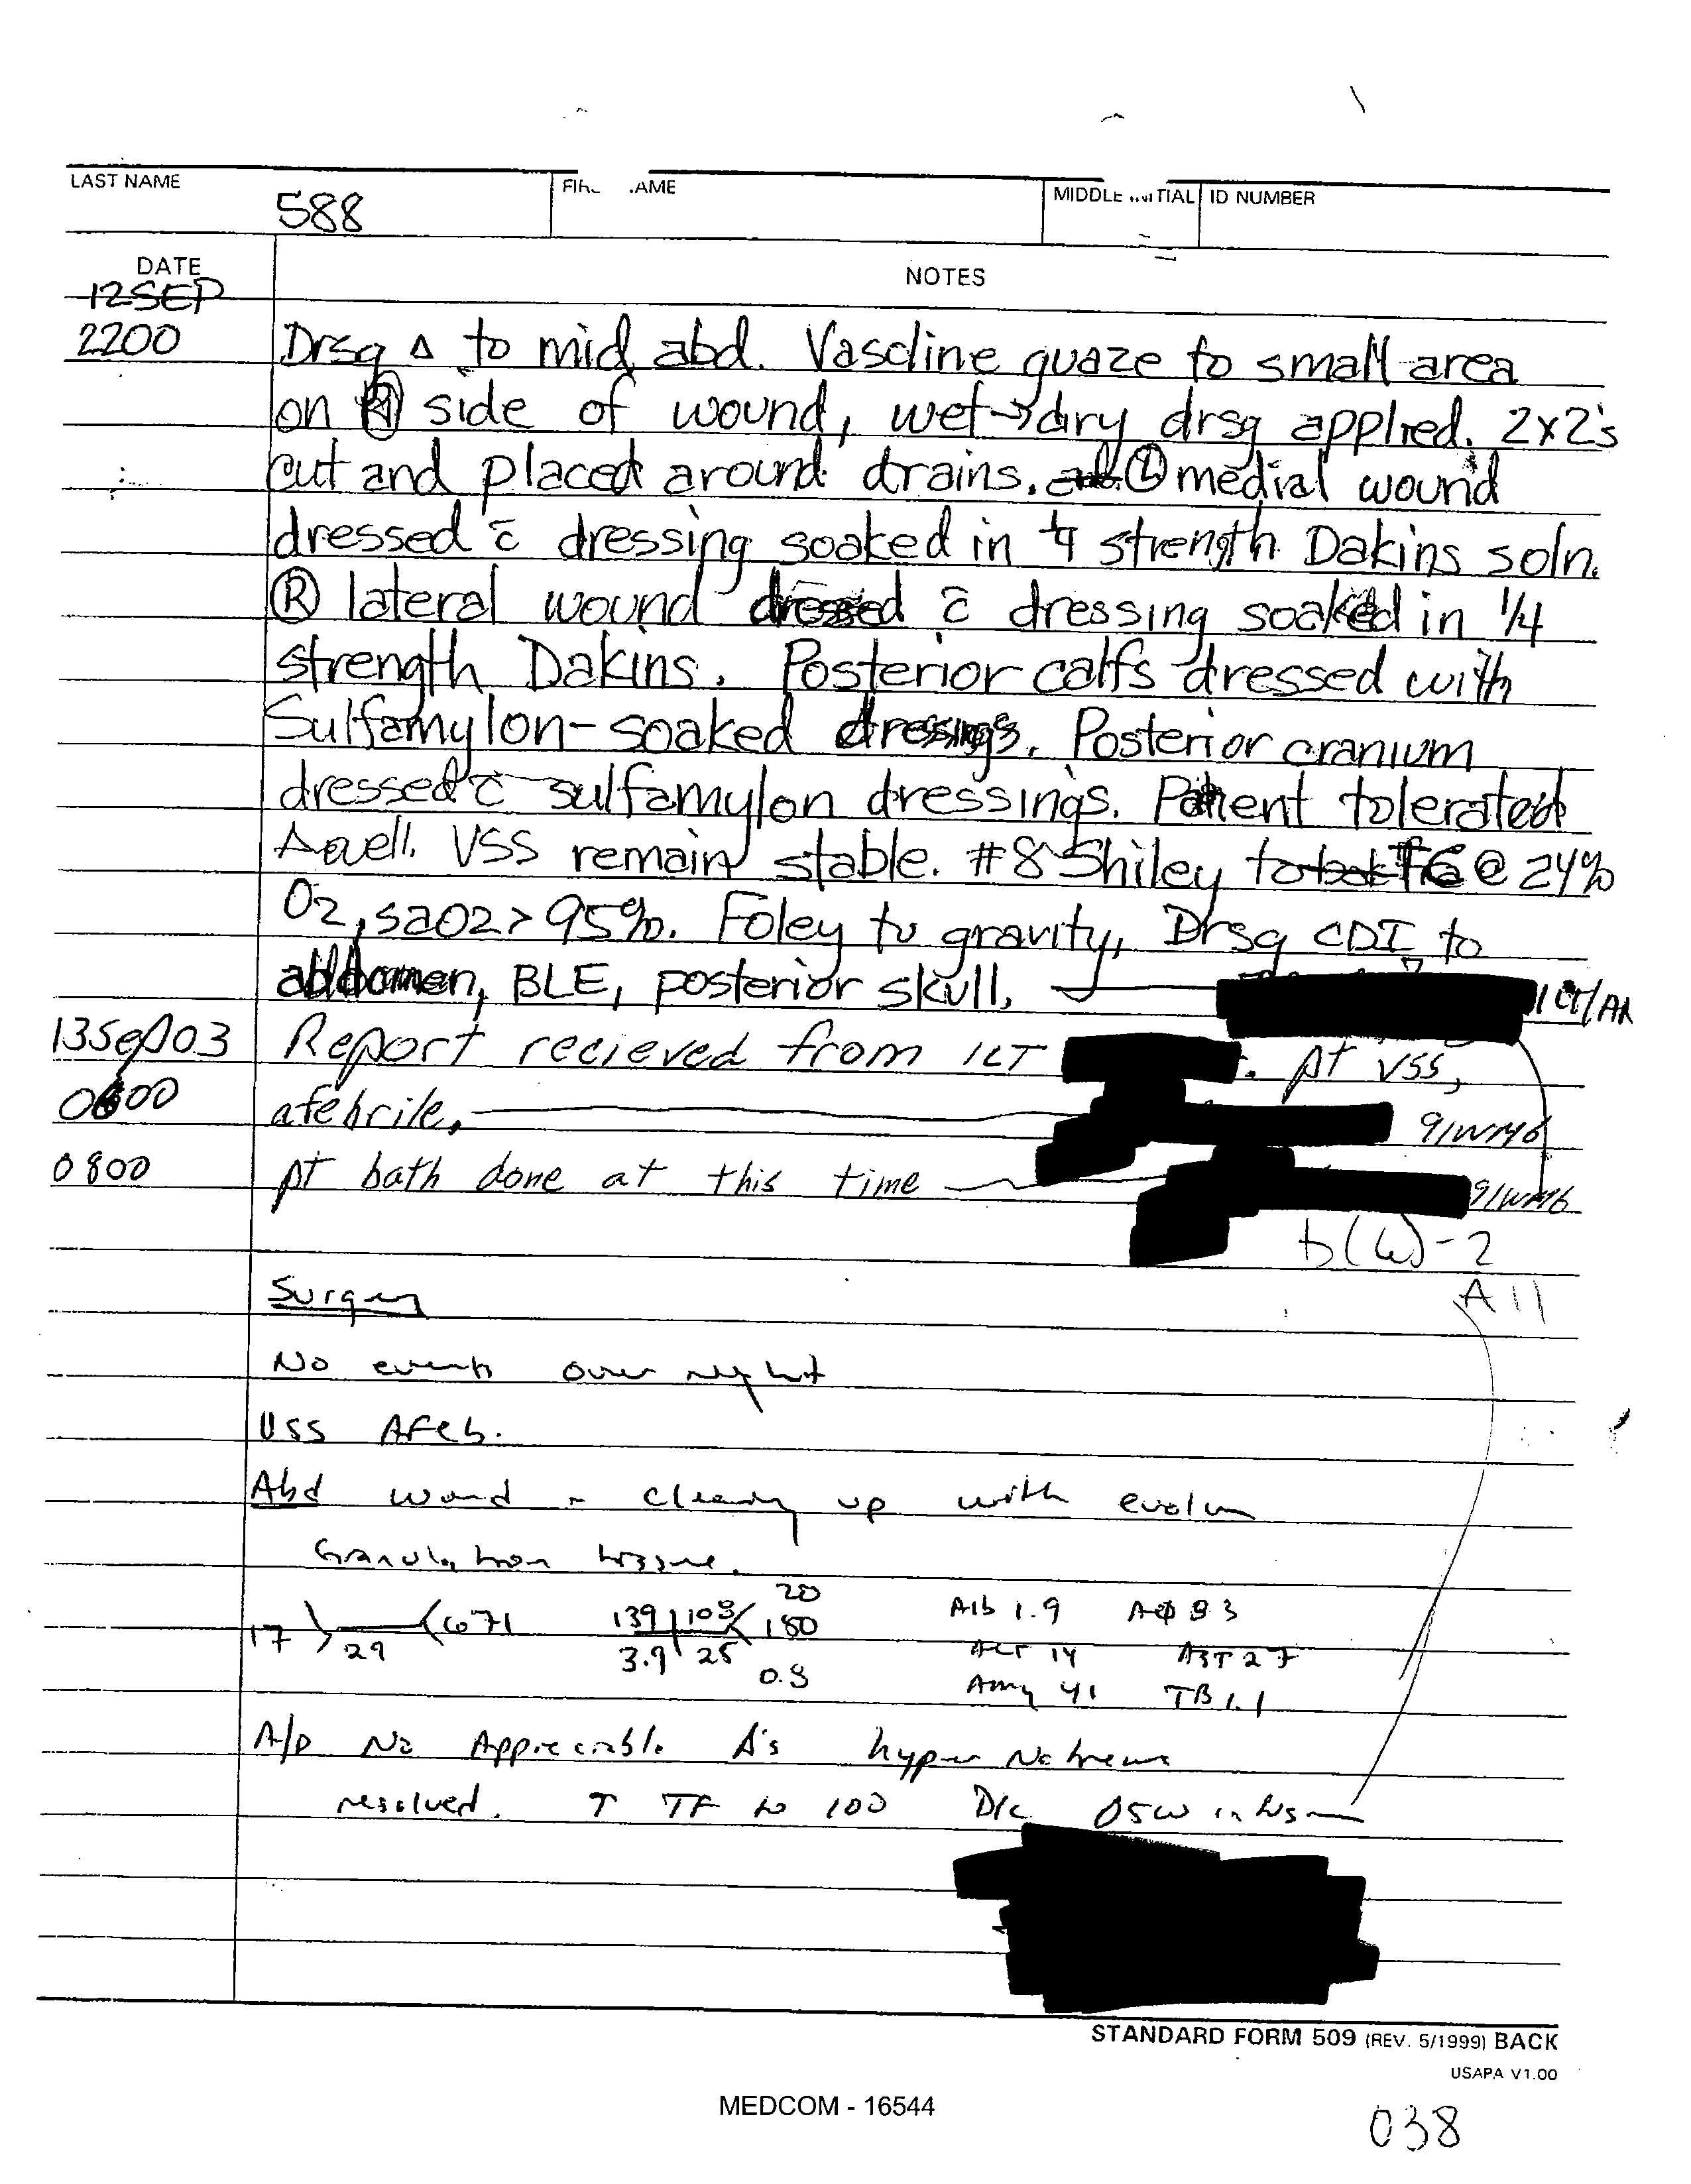 LAST NAME
588
FIR
AME
MIDDLE
TIAL
ID NUMBER
DATE
NOTES
12SEP
2200
Drsg Δ to mid abd. Vaseline guaze to small area
on Ⓡ side of wound, wet→dry drsg applied. 2x2's
cut and placed around drains. Ⓛ medial wound
dressed c̄ dressing soaked in ¼ strength Dakins soln.
Ⓡ lateral wound dressed c̄ dressing soaked in 1/4
strength Dakins. Posterior calfs dressed with
Sulfamylon-soaked dressings. Posterior cranium
dressed c̄ sulfamylon dressings. Patient tolerated
Δ well. VSS remain stable. #8 Shiley to @ 24%
O2, sao2 > 95%. Foley to gravity, Drsg CDI to
abdomen, BLE, posterior skull.
13Sep03
Report recieved from 1LT . pt VSS,
0600
afebrile, 91WM6
0800
pt bath done at this time 91WM6
b(6)-2
All
Surgery
No events over night
VSS Afeb.
Abd wound - cleaning up with
Granulation tissue.
17 29 671
139 108 20
3.9 25 180
0.8
Alb 1.9 AΦ 83
ALT 14 AST 27
Amy 41 TB 1.1
A/P No Appreciable Δ's hyper Natremia
resolved. ↑ TF to 100 D/c D5W
STANDARD FORM 509 (REV. 5/1999) BACK
USAPA V1.00
MEDCOM - 16544
038